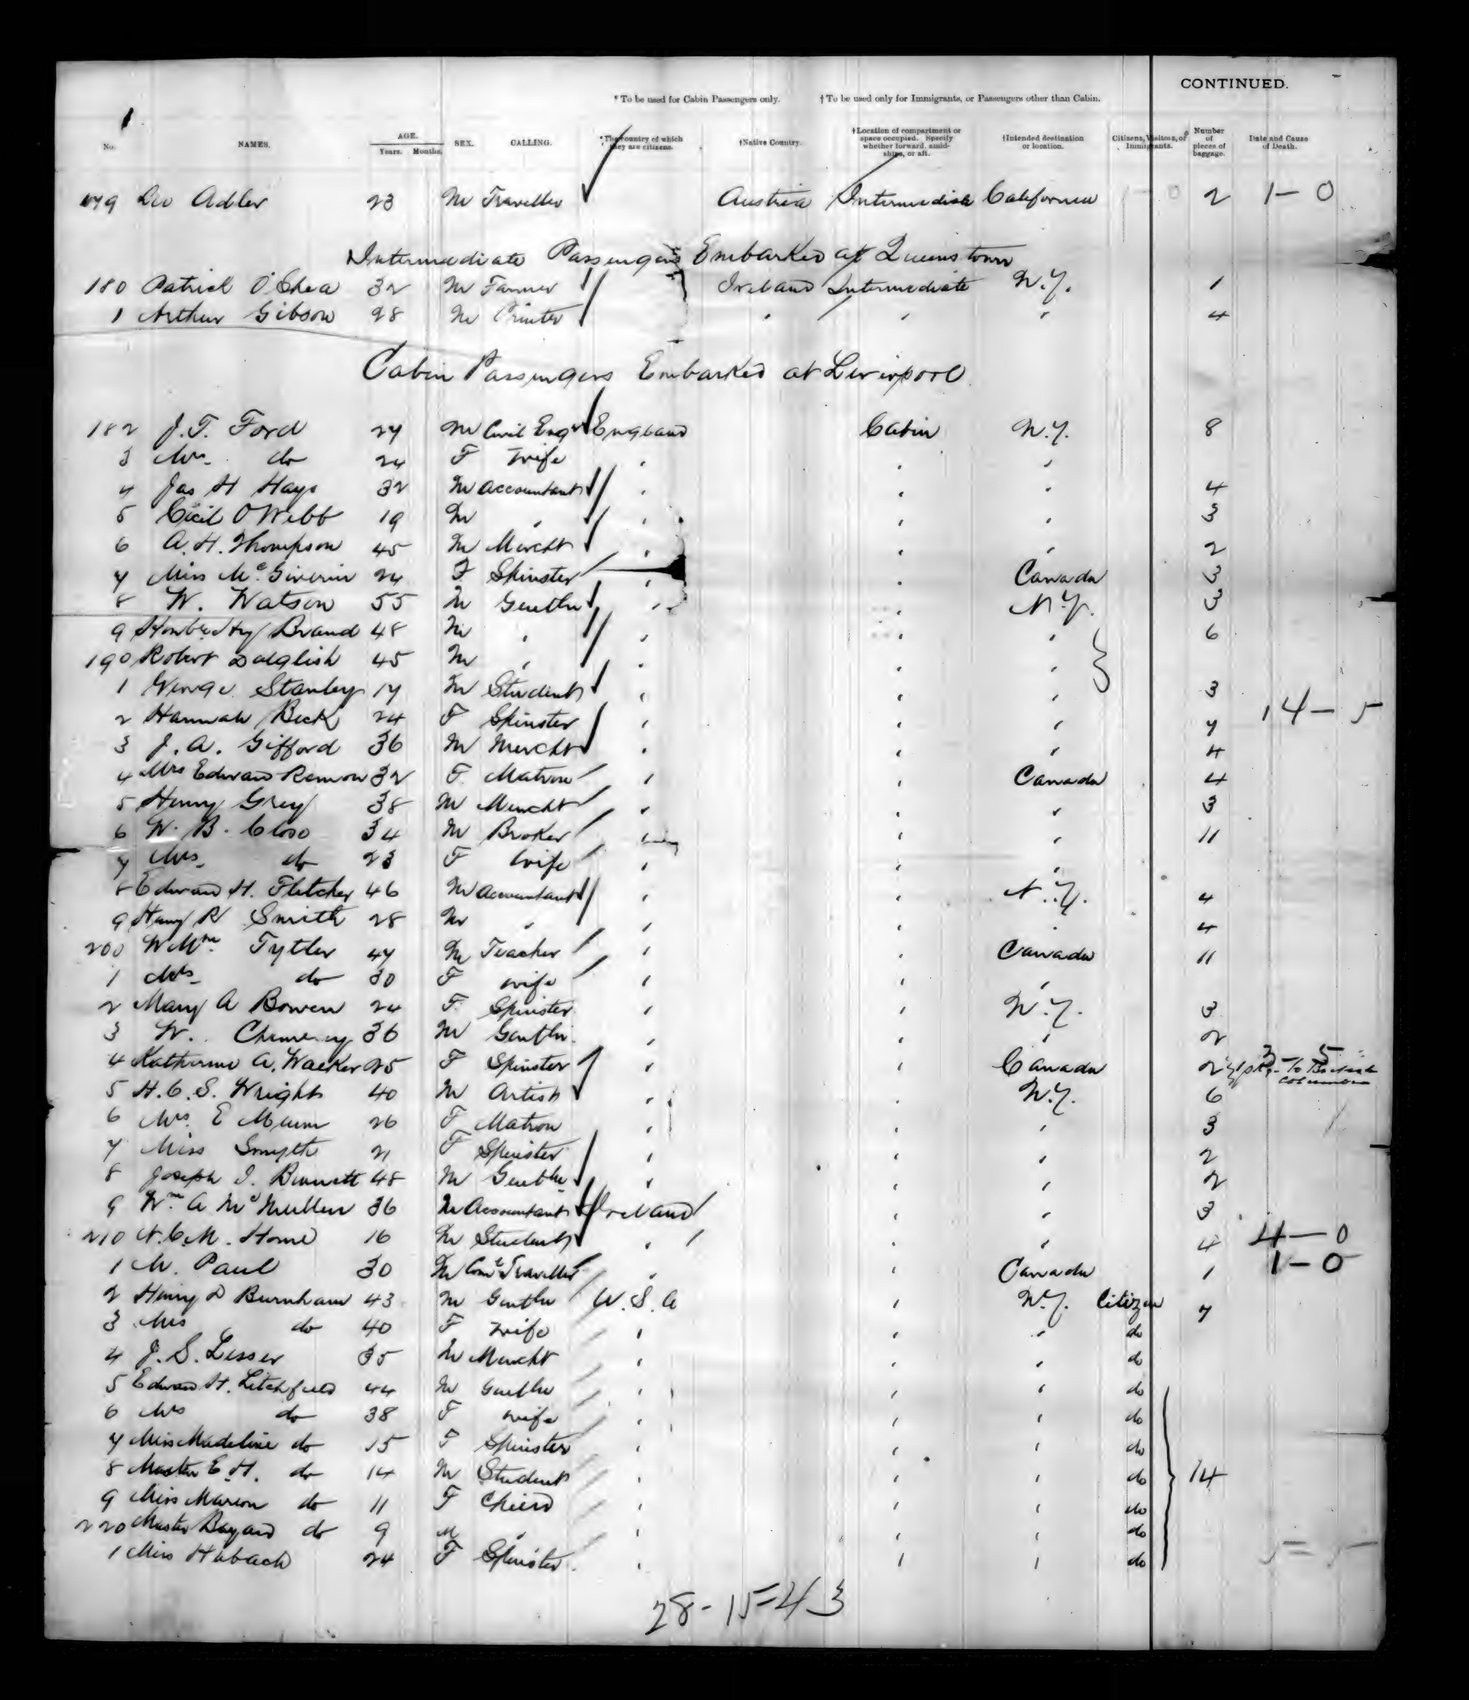 CONTINUED.
* To be used for Cabin Passengers only. † To be used only for Immigrants, or Passengers other than Cabin.
No. NAMES. AGE. Years. Months. SEX. CALLING. *The country of which they are citizens. †Native Country. †Location of compartment or space occupied. Specify whether forward, amidships, or aft. †Intended destination or location. Citizens, Visitors, or Immigrants. Number of pieces of baggage. Date and Cause of Death.
179 Leo Adler 23 M Traveller Austria Intermediate California 1-0 2 1-0
Intermediate Passengers Embarked at Queenstown
180 Patrick O'Shea 32 M Farmer Ireland Intermediate N.Y. 1
1 Arthur Gibson 28 M Printer " " " 4
Cabin Passengers Embarked at Liverpool
182 J. T. Ford 27 M Civil Engr England Cabin N.Y. 8
3 Mrs do 24 F Wife " " "
4 Jas H Hays 32 M Accountant " " " 4
5 Cecil O Webb 19 M " " " " 3
6 A. H. Thompson 45 M Mercht " " " 2
7 Miss McGiverin 24 F Spinster " " Canada 3
8 W. Watson 55 M Gentln " " N.Y. 3
9 Brand 48 M " " " " 6
190 Robert Dalglish 45 M " " " "
1 George Stanley 17 M Student " " " 3 14-5
2 Hannah Beck 24 F Spinster " " " 7
3 J. A. Gifford 36 M Mercht " " " 4
4 Mrs Edward 32 F Matron " " Canada 4
5 Henry Grey 38 M Mercht " " " 3
6 W. B. Close 34 M Broker " " " 11
7 Mrs do 23 F Wife " " "
8 Edward H. Fletcher 46 M Accountant " " N.Y. 4
9 Harry R Smith 28 M " " " " 4
200 Wm Tytler 47 M Teacher " " Canada 11
1 Mrs do 30 F Wife " " "
2 Mary A Bowen 24 F Spinster " " N.Y. 3
3 W. 36 M Gentln " " " 2
4 Katherine A. Walker 25 F Spinster " " Canada 2 3-5 To British Columbia
5 H. C. S. Wright 40 M Artist " " N.Y. 6
6 Mrs E Munn 26 F Matron " " " 3
7 Miss Smyth 21 F Spinster " " " 2
8 Joseph I. Bennett 48 M Gentln " " " 2
9 Wm A McMullen 36 M Accountant Ireland " " 3
210 N. C. M. Home 16 M Student " " " 4 4-0
1 M. Paul 30 M Coml Traveller " " Canada 1 1-0
2 Henry D Burnham 43 M Gentln U.S.A " N.Y. Citizen 7
3 Mrs do 40 F Wife " " " do
4 J. S. Lesser 35 M Mercht " " " do
5 Edward H. Litchfield 44 M Gentln " " " do
6 Mrs do 38 F Wife " " " do
7 Miss Madeline do 15 F Spinster " " " do
8 Master E. H. do 14 M Student " " " do 14
9 Miss Marion do 11 F Child " " " do
220 Master Bayard do 9 M " " " " do
1 Miss Habach 24 F Spinster " " " do
28-15=43